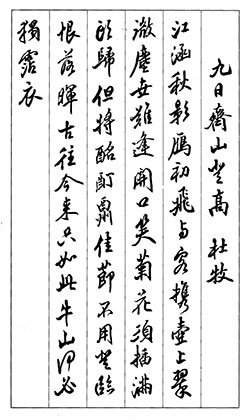 九日齊山登高 杜牧
江涵秋影鴈初飛与客携壺上翠
微塵世難逢開口笑菊花須插滿
頭歸但將酩酊酬佳節不用登臨
恨落暉古往今來只如此牛山何必
獨霑衣